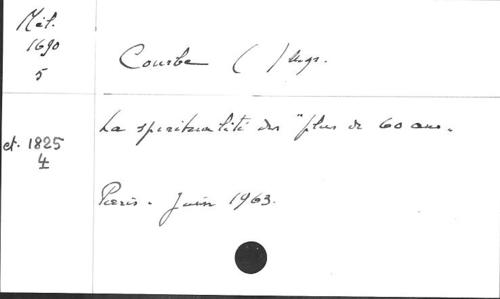 Mél.
1690
5
Courbe ( ) Mgr.
La spiritualité des "plus de 60 ans.
et. 1825
4
Paris. Juin 1963.